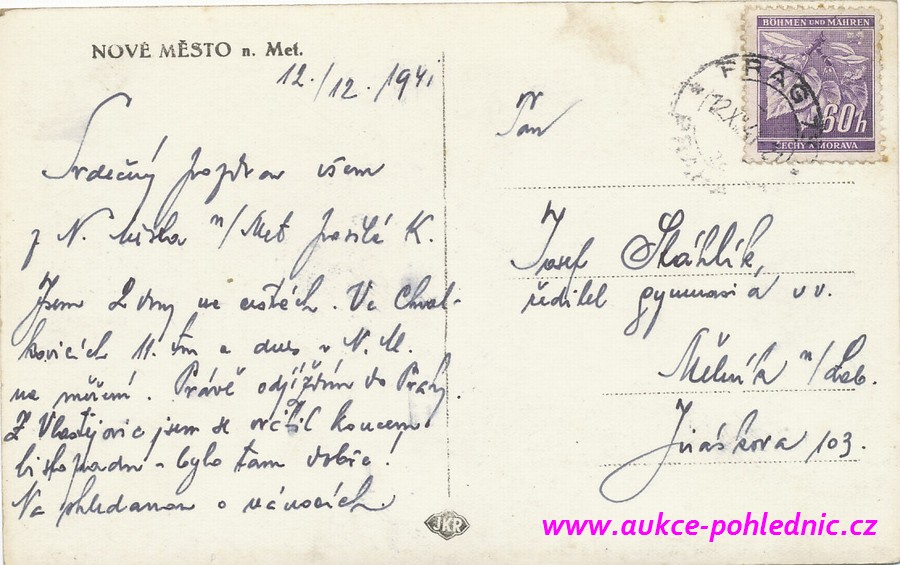 NOVÉ MĚSTO n. Met.
12./12. 1941
Srdečný pozdrav všem
z N. Města n/Met posílá K.
Jsem 2 dny na cestách. Ve Chval-
kovicích 11. tm a dnes v N. M.
na měření. Právě odjíždím do Prahy.
Z Vlastějovic jsem se vrátil koncem
listopadu - bylo tam dobře!
Na shledanou o vánocích
JKR
BÖHMEN UND MÄHREN
60h
ČECHY A MORAVA
PRAG
PRAHA
Pan
Josef Stáhlík,
ředitel gymnasia v v.
Mělník n/Lab.
Jiráskova 103.
www.aukce-pohlednic.cz